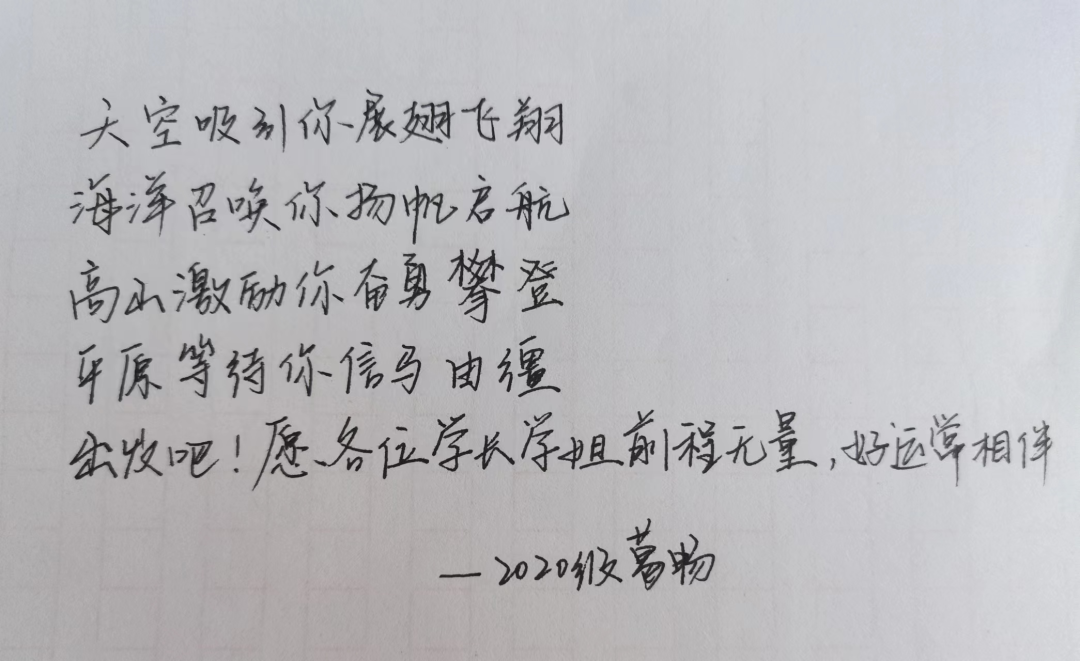 天空吸引你展翅飞翔
海洋召唤你扬帆启航
高山激励你奋勇攀登
平原等待你信马由缰
出发吧！愿各位学长学姐前程无量，好运常相伴
—2020级葛畅